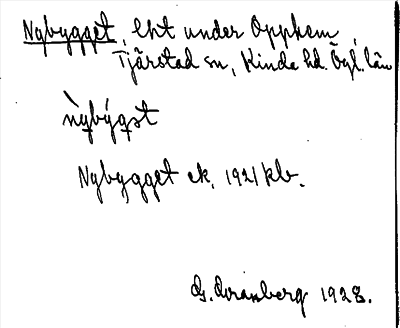 Nybygget, lht under Opphem,
Tjärstad sn, Kinda hd. Ögl. län
Nybygget ek. 1921 klv.
G. Granberg 1928.